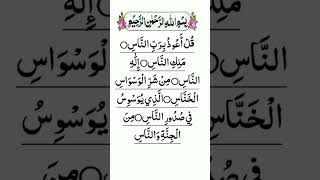 بِسْمِ اللهِ الرَّحْمٰنِ الرَّحِيْمِ
قُلْ أَعُوذُ بِرَبِّ النَّاسِ○
مَلِكِ النَّاسِ○ إِلٰهِ
النَّاسِ○ مِنْ شَرِّ الْوَسْوَاسِ
الْخَنَّاسِ○ الَّذِي يُوَسْوِسُ
فِي صُدُورِ النَّاسِ○ مِنَ
الْجِنَّةِ وَالنَّاسِ